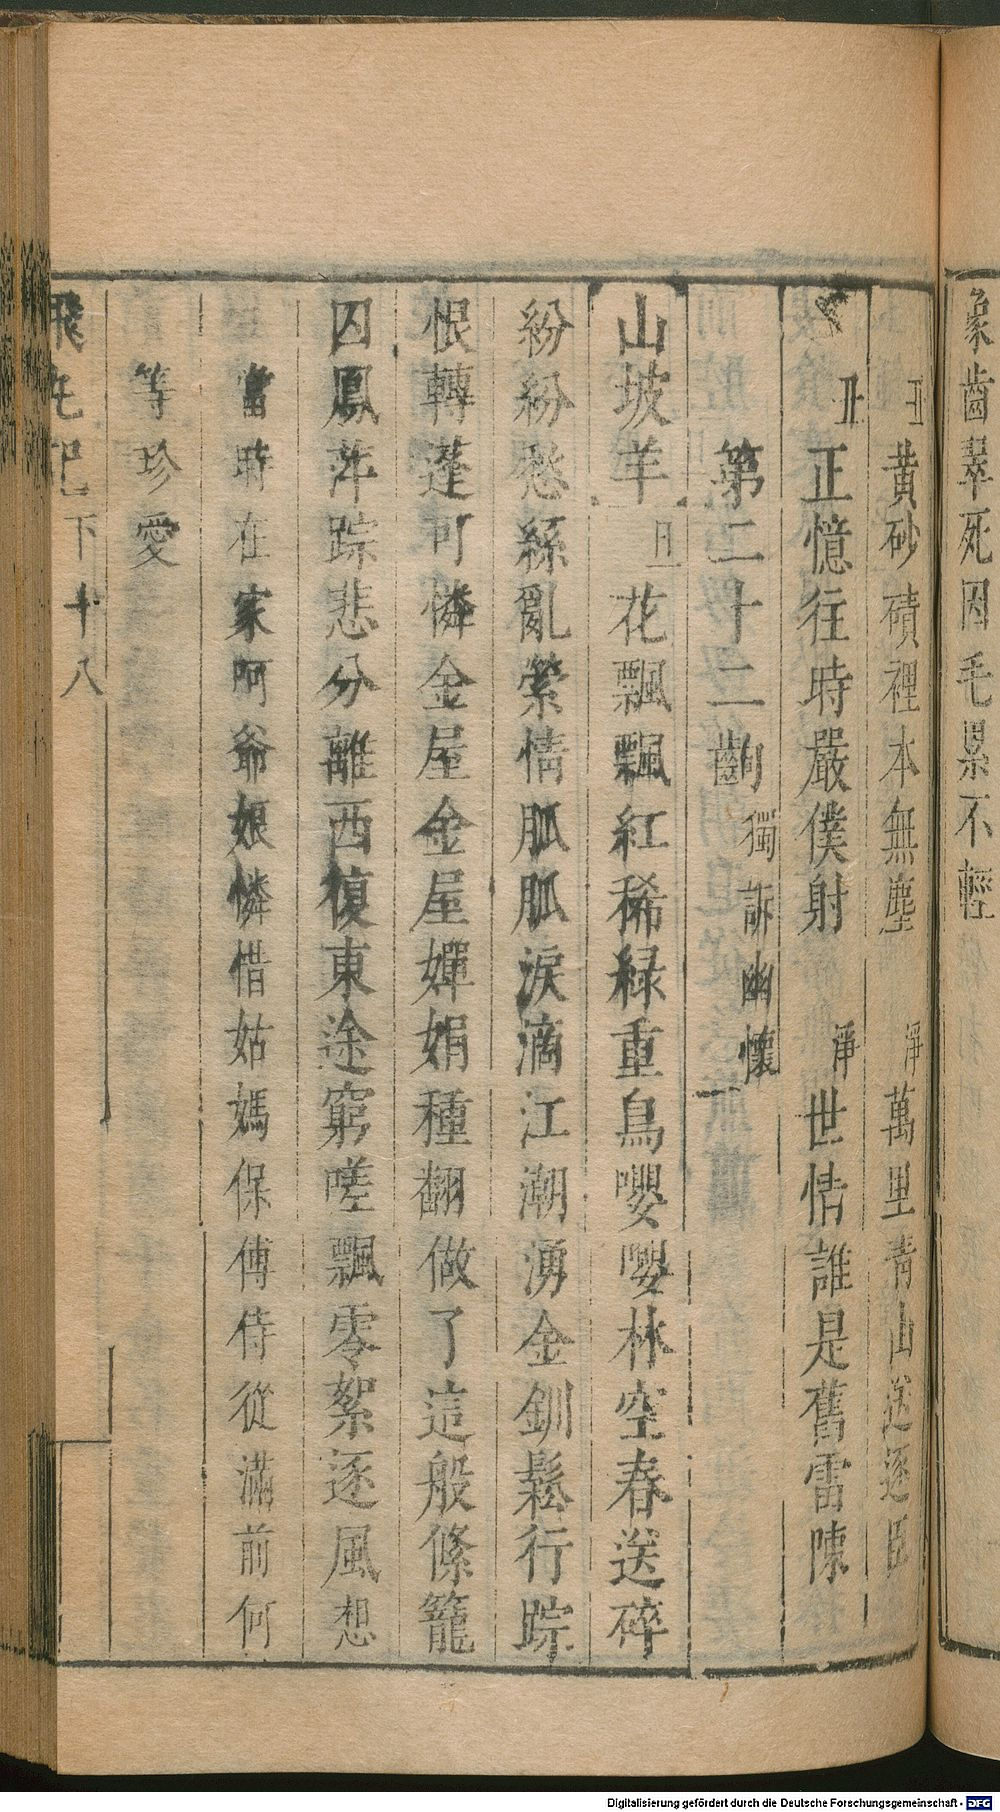 象齒翠死因毛累不輕
丑黃砂磧裡本無塵 淨萬里青山送逐臣
丑正憶往時嚴僕射 淨世情誰是舊雷陳
第二十二齣 獨訴幽懷
山坡羊 旦 花飄飄紅稀綠重鳥嚶嚶林空春送碎
紛紛愁絲亂縈情胍胍淚滴江潮湧金釧鬆行踪
恨轉蓬可憐金屋金屋嬋娟種翻做了這般絛籠
囚鳳萍踪悲分離西復東途窮嗟飄零絮逐風想
當時在家阿爺娘憐惜姑媽保傅侍從滿前何
等珍愛
飛丸記 下 十八
Digitalisierung gefördert durch die Deutsche Forschungsgemeinschaft - DFG